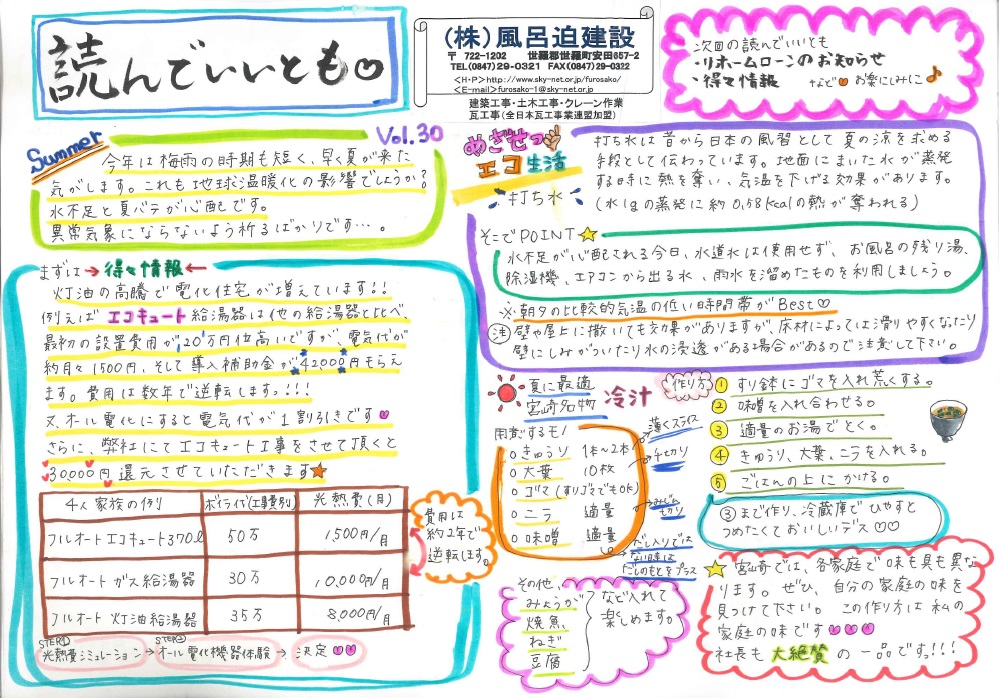 読んでいいとも
(株)風呂迫建設
〒 722-1202 世羅郡世羅町安田657-2
TEL(0847)29-0321 FAX(0847)29-0322
<H・P>http://www.sky-net.or.jp/furosako/
<E-mail>furosako-1@sky-net.or.jp
建築工事・土木工事・クレーン作業
瓦工事(全日本瓦工事業連盟加盟)
次回の読んでいいとも
・リホームローンのお知らせ
・得々情報 など♡お楽しみに♪
Summer
Vol.30
今年は梅雨の時期も短く、早く夏が来た
気がします。これも地球温暖化の影響でしょうか?
水不足と夏バテが心配です。
異常気象にならないよう祈るばかりです…。
まずは→得々情報←
灯油の高騰で電化住宅が増えています!!
例えばエコキュート給湯器は他の給湯器と比べ、
最初の設置費用が、20万円位高いですが、電気代が
約月々1500円、そして導入補助金が42000円もらえ
ます。費用は数年で逆転しますっ!!!
又、オール電化にすると電気代が1割引きです♡
さらに、弊社にてエコキュート工事をさせて頂くと
30,000円還元させていただきます★
4人家族の例 ボイラ代(工費別) 光熱費(月)
フルオートエコキュート370ℓ 50万 1,500円/月
フルオートガス給湯器 30万 10,000円/月
フルオート灯油給湯器 35万 8,000円/月
費用は
約2年で
逆転します。
STEP① STEP②
光熱費シミュレーション→オール電化機器体験→決定♡♡
めざせっ
エコ生活
打ち水
打ち水は昔から日本の風習として夏の涼を求める
手段として伝わっています。地面にまいた水が蒸発
する時に熱を奪い、気温を下げる効果があります。
(水1gの蒸発に約0.58kcalの熱が奪われる)
そこでPOINT☆
水不足が心配される今日、水道水は使用せず、お風呂の残り湯、
除湿機、エアコンから出る水、雨水を溜めたものを利用しましょう。
※朝夕の比較的気温の低い時間帯がBest♡
注 壁や屋上に撒いても効果がありますが、床材によっては滑りやすくなったり
壁にしみがついたり水の浸透がある場合があるので注意して下さい。
夏に最適
宮崎名物 冷汁
用意するモノ
○きゅうり 1本～2本
薄くスライス
○大葉 10枚
千切り
○ゴマ(すりゴマでもOK)
○ニラ 適量
みじん切り
○味噌 適量
だし入りでは
ない味噌は
だしのもとをプラス
作り方
① すり鉢にゴマを入れ荒くする。
② 味噌を入れ合わせる。
③ 適量のお湯でとく。
④ きゅうり、大葉、ニラを入れる。
⑤ ごはんの上にかける。
③まで作り、冷蔵庫でひやすと
つめたくておいしいデス♡♡
その他、
みょうが
焼魚
ねぎ
豆腐
など入れて
楽しめます。
☆宮崎では、各家庭で味も具も異な
ります。ぜひ、自分の家庭の味を
見つけて下さい。この作り方は私の
家庭の味です♡♡♡
社長も大絶賛の一品ですっ!!!